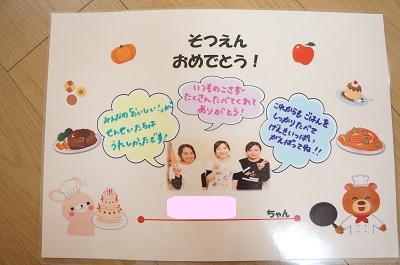 そつえん
おめでとう！
みんなのおいしい！が
せんせいたちは
うれしかったです！
いつものこさず
たくさんたべてくれて
ありがとう！
これからもごはんを
しっかりたべて
げんきいっぱい
がんばってね！！
ちゃん